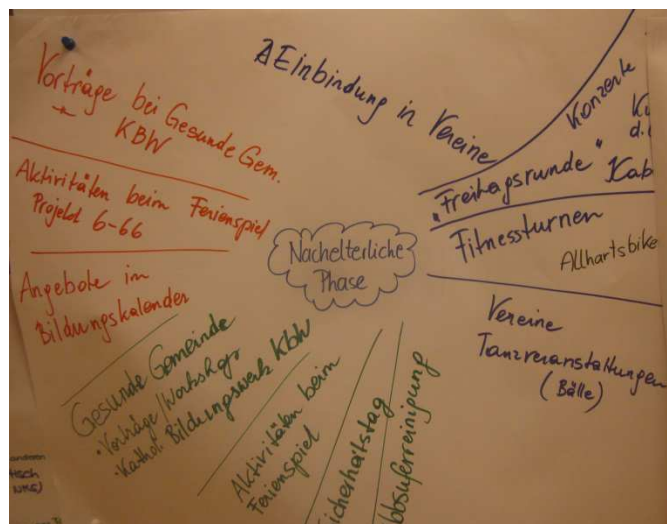 Vorträge bei Gesunde Gem.
KBW
Aktivitäten beim Ferienspiel
Projekt 6-66
Angebote im
Bildungskalender
Gesunde Gemeinde
• Vorträge/Workshops
• Kathol. Bildungswerk KBW
Aktivitäten beim
Ferienspiel
icherheitstag
bbsuferreinigung
Nachelterliche
Phase
Einbindung in Vereine
Konzerte
"Freitagsrunde"
Kab
Fitnessturnen
Allhartsbike
Vereine
Tanzveranstaltungen
(Bälle)
anderen
NMS)